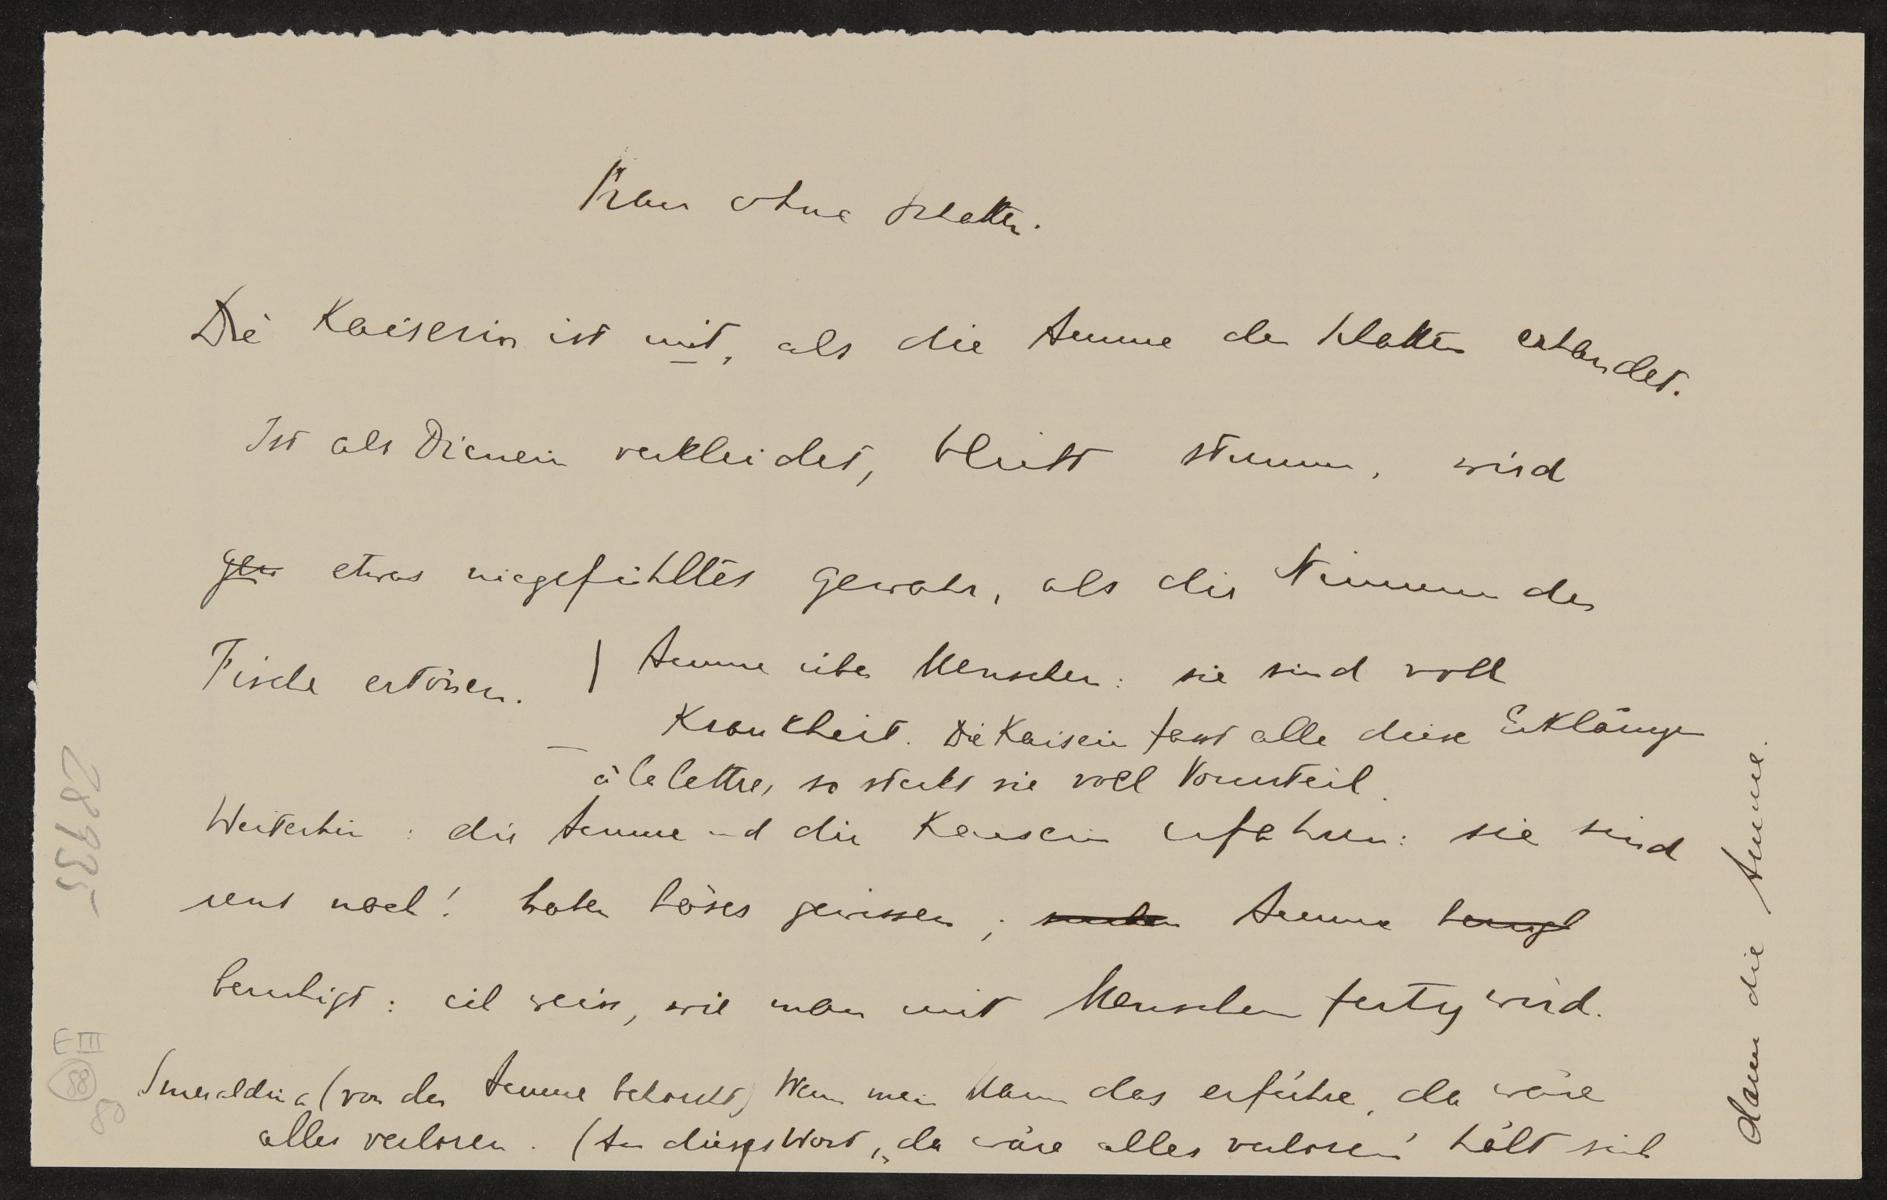 Frau ohne Schatten.
Die Kaiserin ist mit, als die Amme den Schatten erhandet.
Ist als Dienerin verkleidet, bleibt stumm, wird
etwas niegefühltes gewahr, als die Stimmen der
Fische ertönen. | Amme über Menschen: sie sind voll
Krankheit. Die Kaiserin fasst alle diese Erklärungen
à la lettre, so steckt sie voll Vorurteil.
Weiterhin: die Amme und die Kaiserin erfahren: sie sind
noch! haben böses gewissen; Amme
beruhigt: ich weiss, wie man mit Menschen fertig wird.
Smeraldina (von der Amme behorcht) Wenn mein Mann das erführe, da wäre
alles verloren. (An dieses Wort „da wäre alles verloren" hält sich
dann die Amme.
28935
E III
88
88